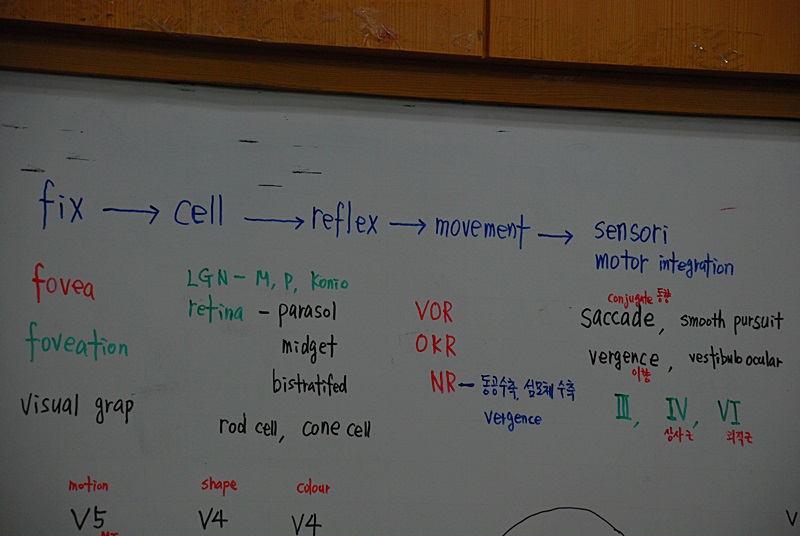 fix → cell → reflex → movement → sensori
motor integration
fovea
foveation
visual grap
LGN – M, P, Konio
retina – parasol
midget
bistratifed
rod cell, cone cell
VOR
OKR
NR – 동공수축, 섬모체 수축
vergence
conjugate 동향
saccade, smooth pursuit
vergence, vestibuloocular
이향
III, IV, VI
상사근 외직근
motion shape colour
V5 V4 V4
MT
V